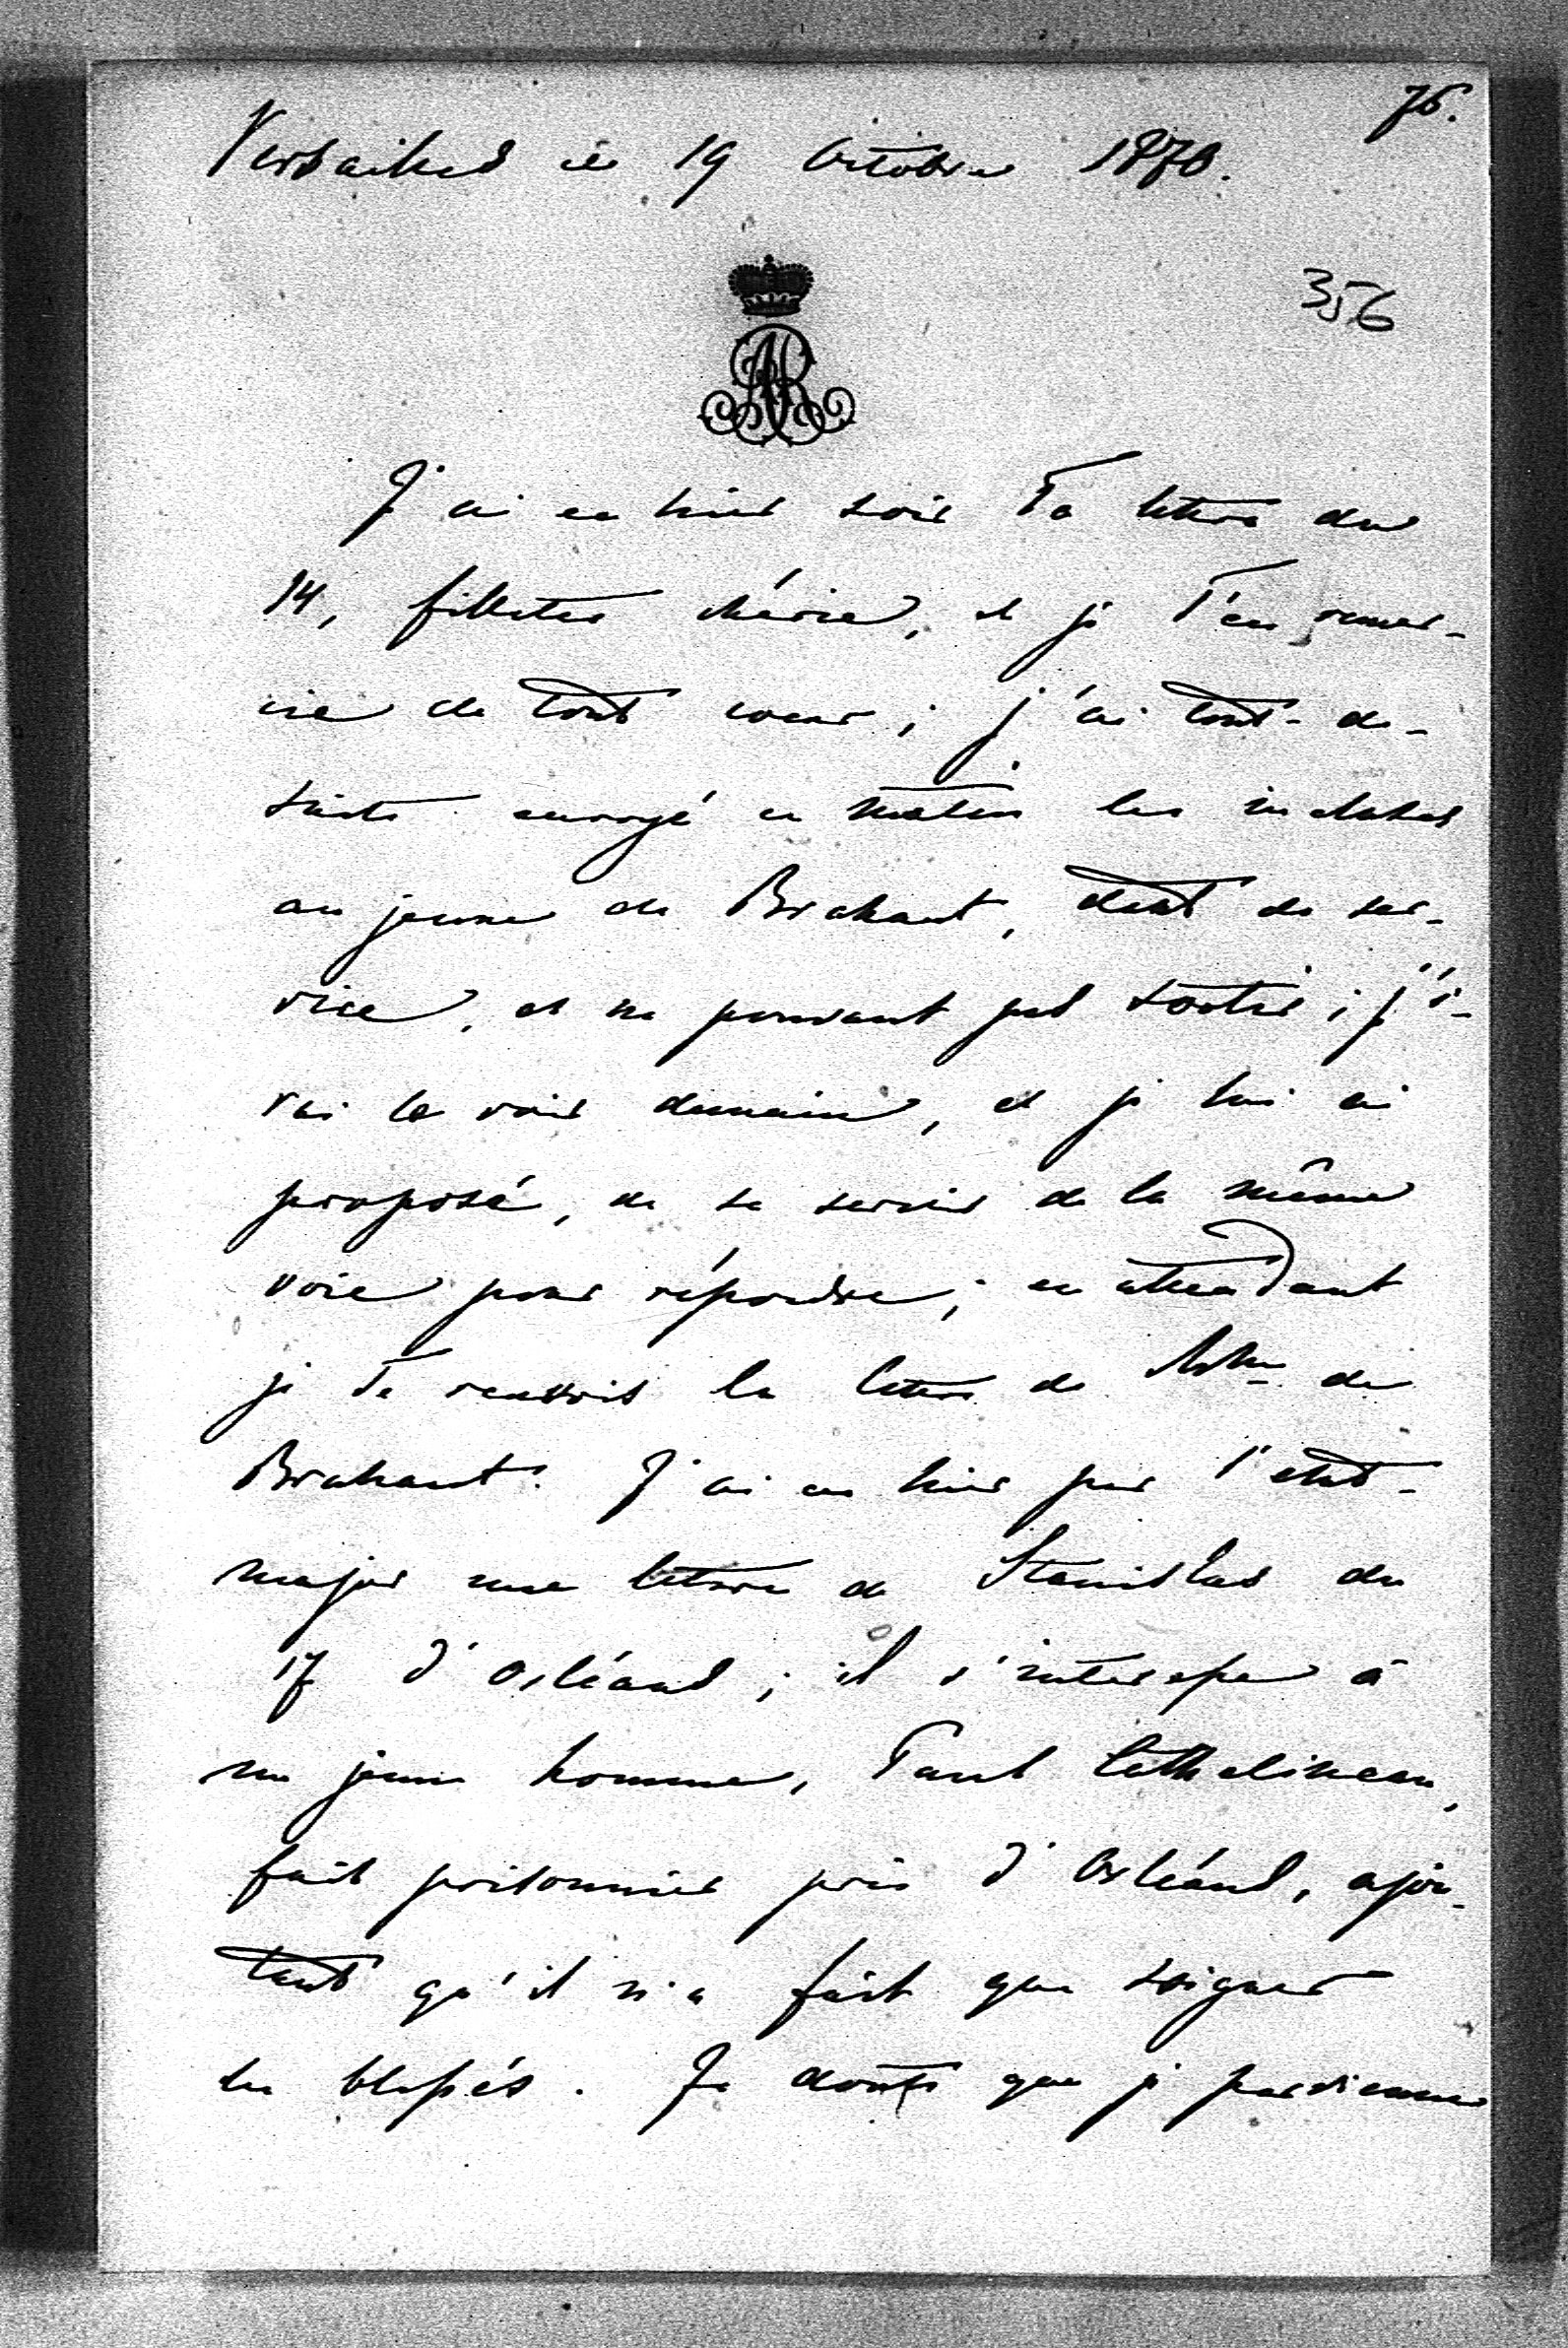 76.
Versailles ce 19 Octobre 1870.
356
AR
J'ai eu hier soir Ta lettre du
14, fillette chérie, et je T'en remer-
cie de tout coeur; j'ai tout-de-
suite envoyé ce matin les incluses
au jeune de Brahaut, étant de ser-
vice, et ne pouvant pas sortir; j'i-
rai le voir demain, et je lui ai
proposé, de se servir de la même
voie pour répondre; en attendant
je Te renvois la lettre de Mme de
Brahaut. J'ai eu hier par l'état-
major une lettre de Stanislas du
17 d'Orléans; il s'interesse à
un jeune homme, Paul
fait prisonnier près d'Orléans, ajou-
tant qu'il n'a fait que soigner
les blessés. Je doute que je parvienne